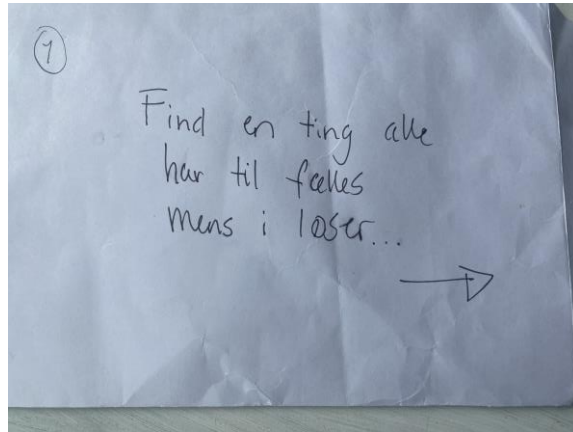 1
Find en ting alle
har til fælles
mens i løser...